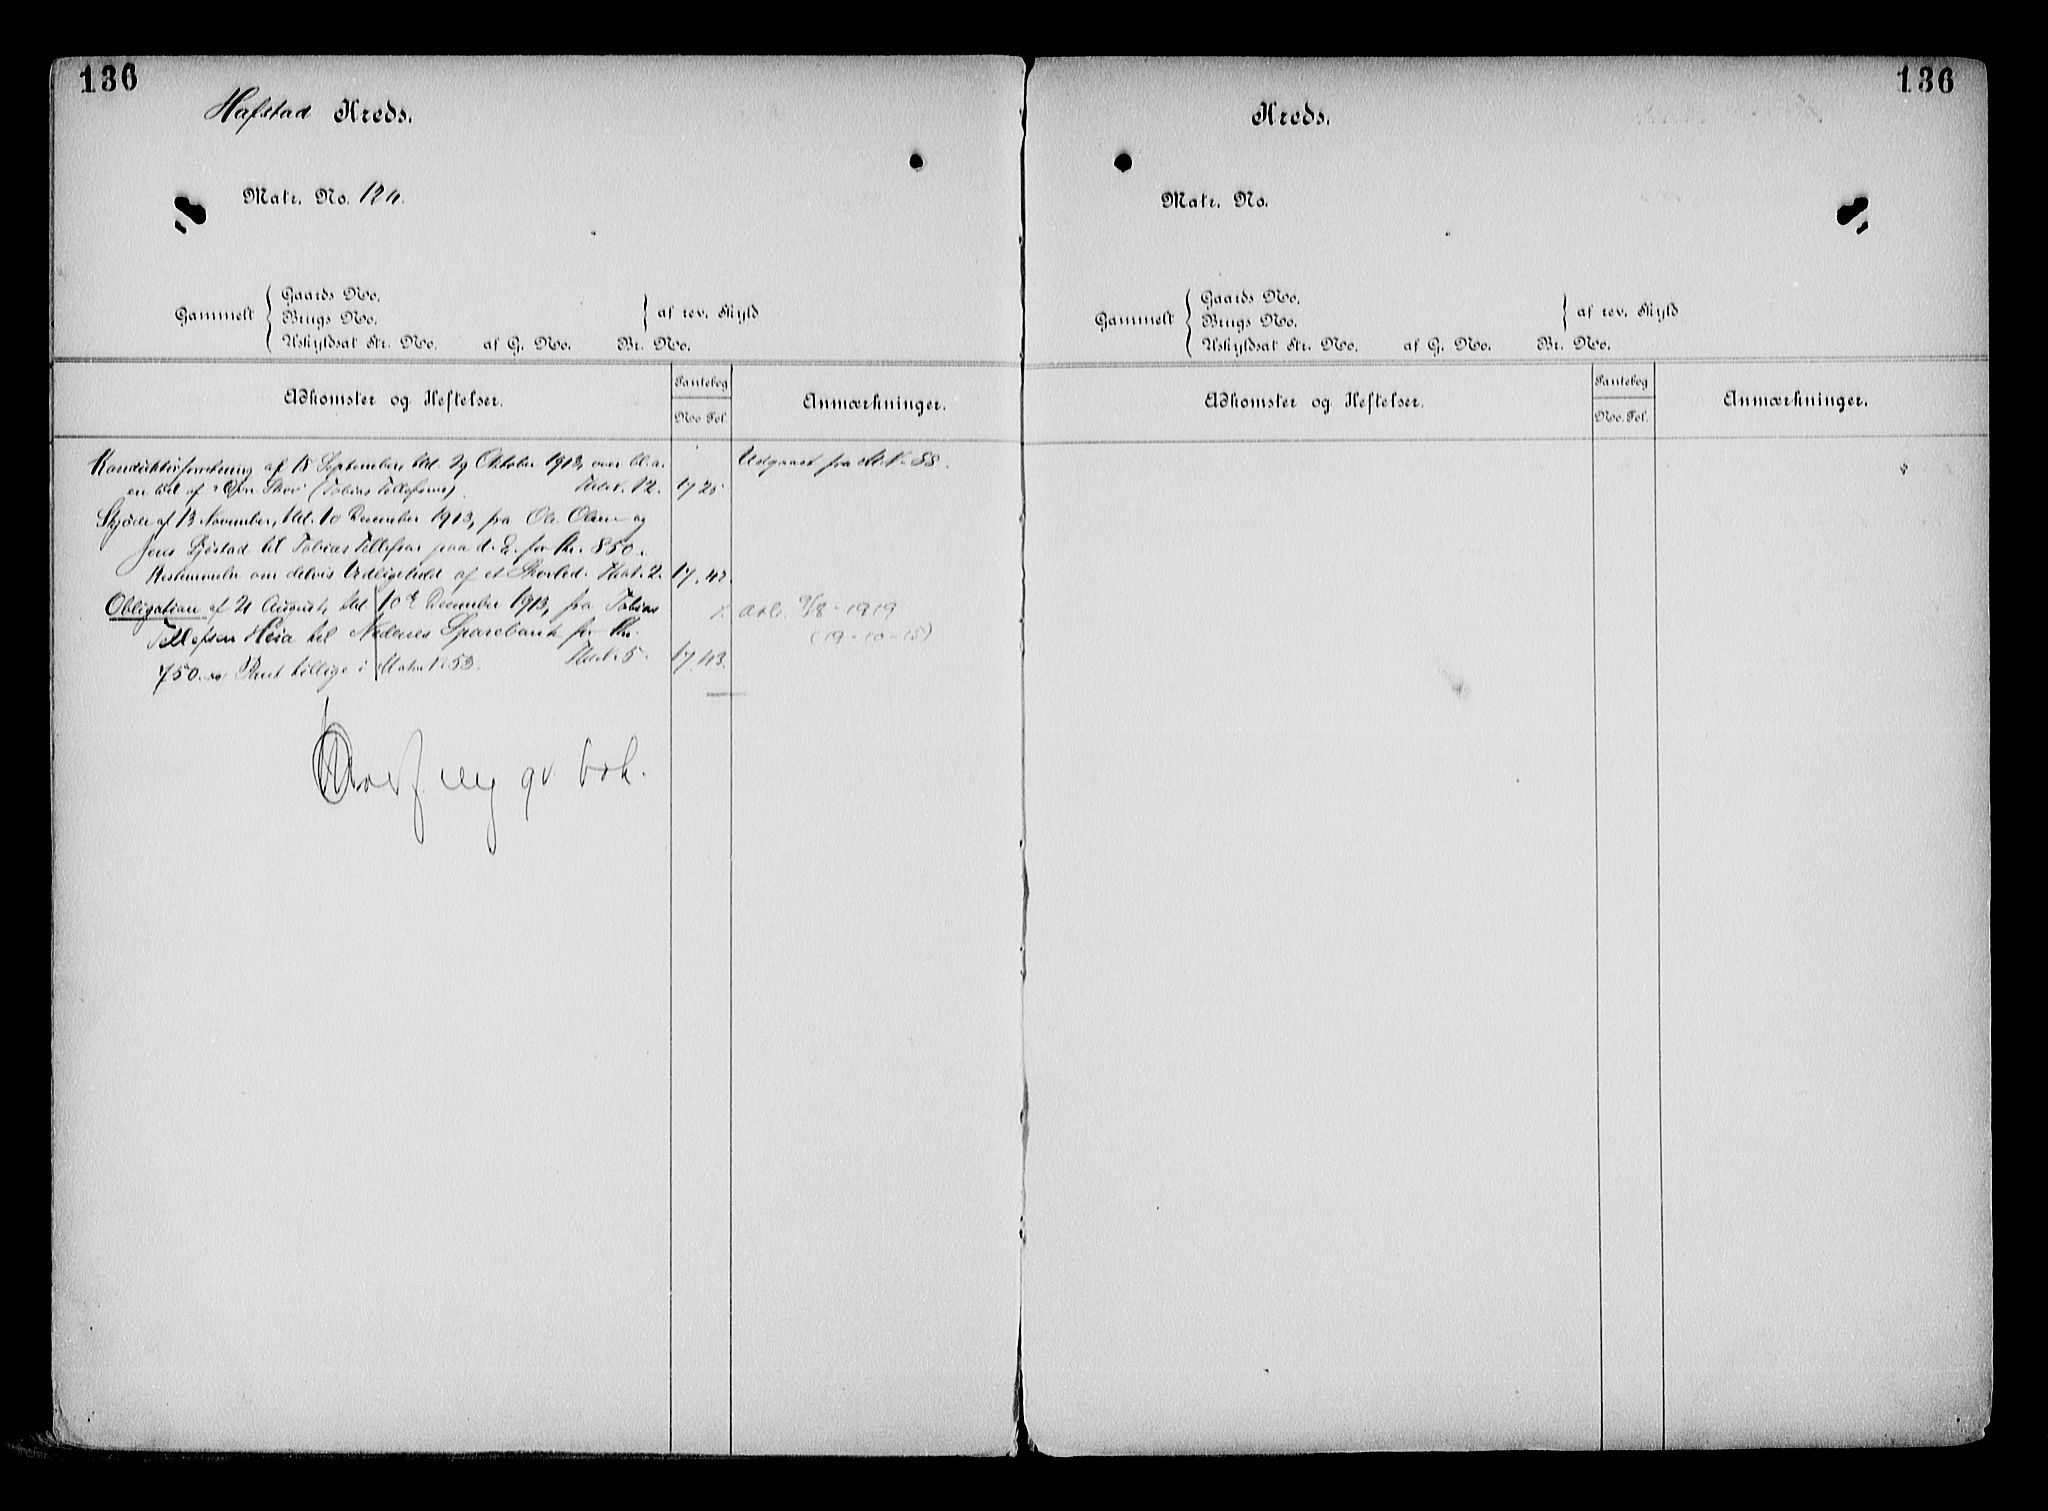 136
Hafstad Kreds.
Matr. No.
Gammelt
Gaards No.
Brugs No.
Uskyldsat Str. No. af G. No. Br. No.
af rev. Skyld
Adkomster og Heftelser.
Pantebog
No. Fol.
Anmærkninger.
Konduktørforretning af 15 September, thl. 29 Oktober 1913, over bl. a.
en Del af (Tobias Tellefsens). 12. 17 25
Udgaaet fra M. N. 88.
Skjøde af 13 November, thl. 10 December 1913, fra Ole Olsen og
Jens til Tobias Tellefsen paa d. E. for Kr. 850.
om delvis Vedligehold af et 2. 17, 42
Obligation af 21 August, thl 10 December 1913, fra Tobias
Tellefsen Heia til Nedenes Sparebank for Kr.
750.00 Pant tillige i Matr. N. 53. 5. 17, 43.
x avl. 9/8 - 1919
(19-10-15)
136
Kreds.
Matr. No.
Gammelt
Gaards No.
Brugs No.
Uskyldsat Str. No. af G. No. Br. No.
af rev. Skyld
Adkomster og Heftelser.
Pantebog
No. Fol.
Anmærkninger.